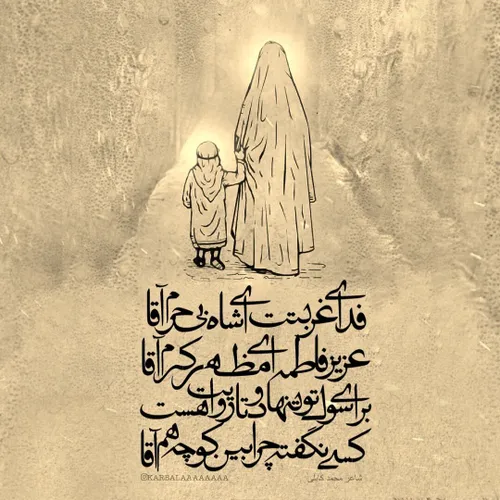 فدای غربتت ای شاه بی حرم آقا
عزیز فاطمه ای مظهر کرم آقا
برای سوگ تو تنها دو تا روایت هست
کسی نگفته چرا بین کوچه هم آقا
@KARBALAAAAAAAA
شاعر: محمد کابلی